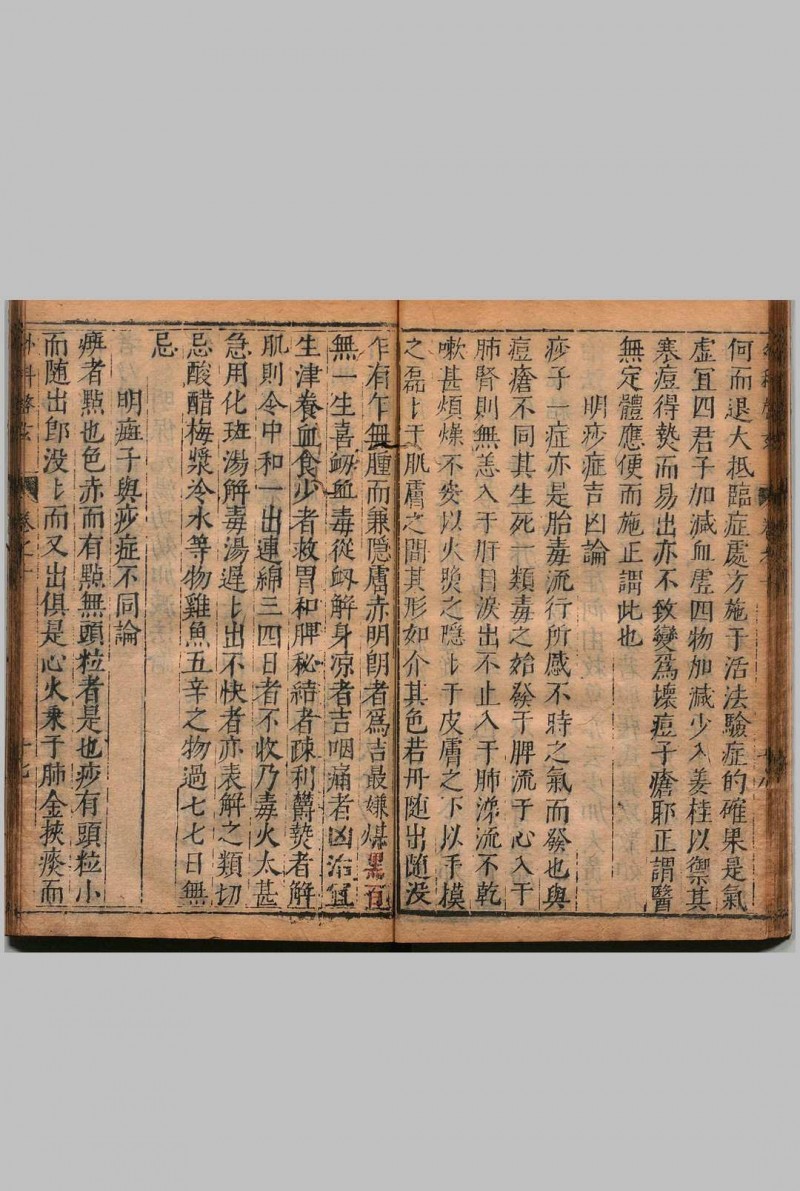 何而退大抵臨症處方施于活法驗症的確果是氣
虛宜四君子加減血虛四物加減少入姜桂以禦其
寒痘得𤍠而易出亦不致變爲壞痘子瘡耶正謂醫
無定體應便而施正謂此也
明痧症吉凶論
痧子一症亦是胎毒流行所感不時之氣而發也與
痘瘡不同其生死一類毒之始發于脾流于心入于
肺腎則無恙入于肝目淚出不止入于肺涕流不乾
嗽甚煩燥不安以火照之隱〻于皮膚之下以手模
之磊〻于肌膚之間其形如介其色若丹随出随没
乍有乍無腫而兼隱膚赤明朗者爲吉最嫌煤黑百
無一生喜衂血毒從衂解身凉者吉咽痛者凶治宜
生津養血食少者救胃和脾秘結者疎利欝𤍠者解
肌則令中和一出連綿三四日者不收乃毒火太甚
急用化斑湯解毒湯遲〻出不快者亦表解之類切
忌酸醋梅漿冷水等物雞魚五辛之物過七七日無
忌
明癍子與痧症不同論
癍者點也色赤而有點無頭粒者是也痧有頭粒小
而随出郎没〻而又出俱是心火乗于肺金挾痰而